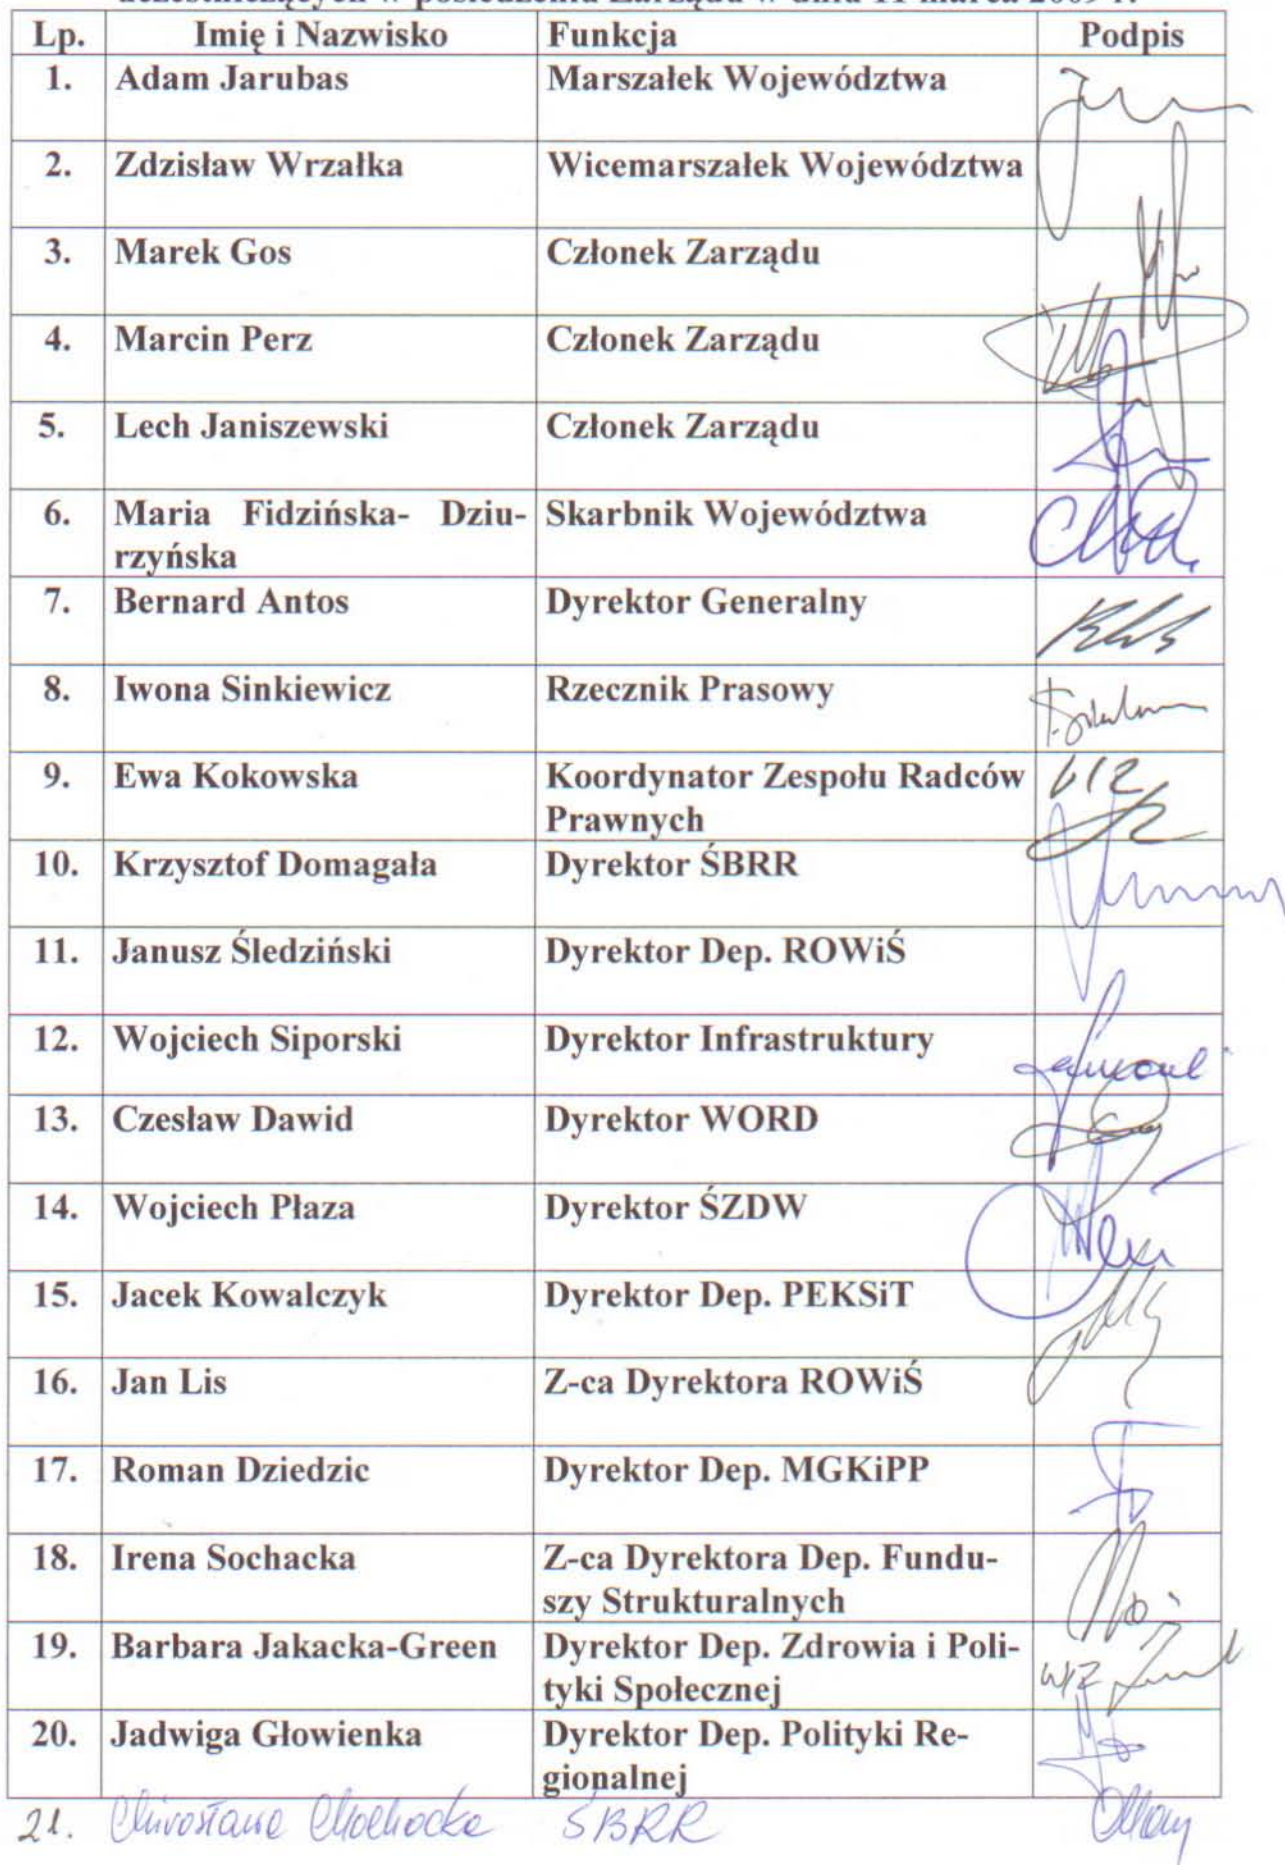 uczestniczących w posiedzeniu Zarządu w dniu 11 marca 2009 r.
Lp. Imię i Nazwisko Funkcja Podpis
1. Adam Jarubas Marszałek Województwa
2. Zdzisław Wrzałka Wicemarszałek Województwa
3. Marek Gos Członek Zarządu
4. Marcin Perz Członek Zarządu
5. Lech Janiszewski Członek Zarządu
6. Maria Fidzińska- Dziu- Skarbnik Województwa
rzyńska
7. Bernard Antos Dyrektor Generalny
8. Iwona Sinkiewicz Rzecznik Prasowy
9. Ewa Kokowska Koordynator Zespołu Radców
Prawnych
10. Krzysztof Domagała Dyrektor ŚBRR
11. Janusz Śledziński Dyrektor Dep. ROWiŚ
12. Wojciech Siporski Dyrektor Infrastruktury
13. Czesław Dawid Dyrektor WORD
14. Wojciech Płaza Dyrektor ŚZDW
15. Jacek Kowalczyk Dyrektor Dep. PEKSiT
16. Jan Lis Z-ca Dyrektora ROWiŚ
17. Roman Dziedzic Dyrektor Dep. MGKiPP
18. Irena Sochacka Z-ca Dyrektora Dep. Fundu-
szy Strukturalnych
19. Barbara Jakacka-Green Dyrektor Dep. Zdrowia i Poli- w/z
tyki Społecznej
20. Jadwiga Głowienka Dyrektor Dep. Polityki Re-
gionalnej
21. ŚBRR